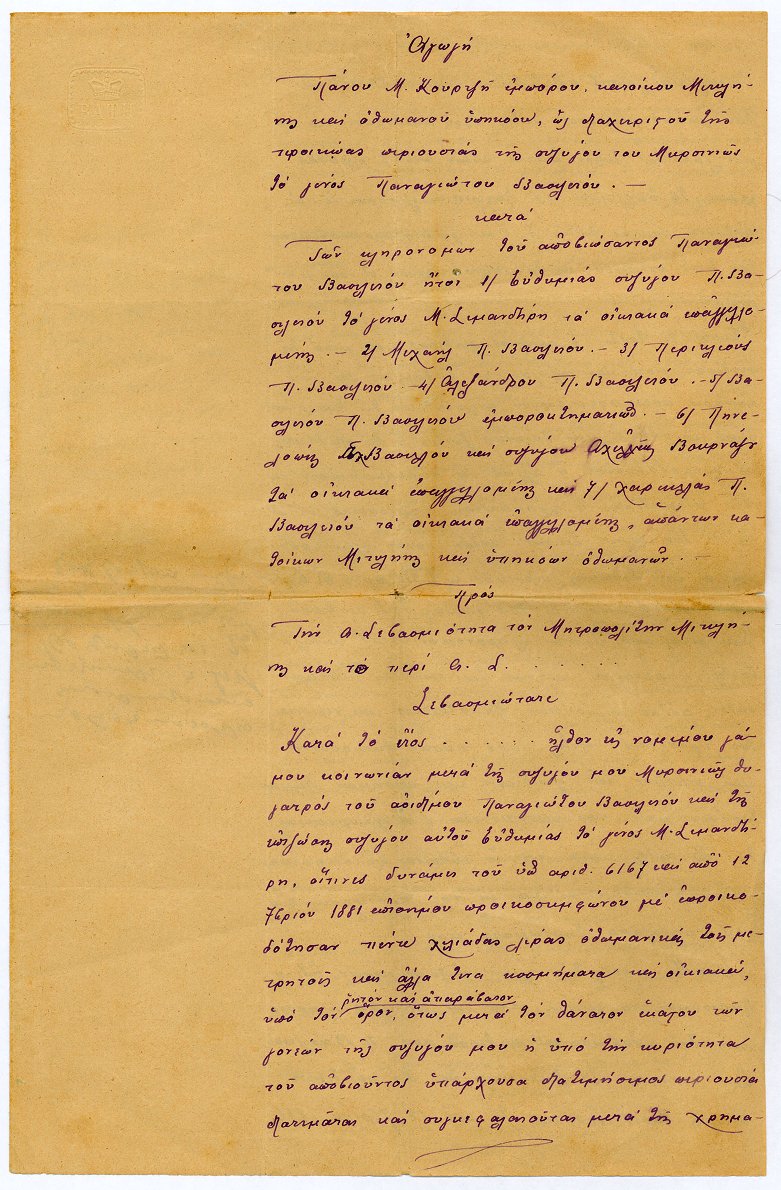 Ἀγωγή
Πάνου Μ. Κουρτζῆ ἐμπόρου, κατοίκου Μιτυλή-
νης καὶ ὀθωμανοῦ ὑπηκόου, ὡς διαχειριστοῦ τῆς
προικώας περιουσίας τῆς συζύγου του Μυρσινιῶς
τὸ γένος Παναγιώτου Βασιλείου. —
κατὰ
Τῶν κληρονόμων τοῦ ἀποβιώσαντος Παναγιώ-
του Βασιλείου ἤτοι 1/ Εὐθυμίας συζύγου Π. Βα-
σιλείου τὸ γένος Μ. Σιμαντήρη τὰ οἰκιακὰ ἐπαγγελλο-
μένης. — 2/ Μιχαὴλ Π. Βασιλείου. — 3/ Περικλέους
Π. Βασιλείου. 4/ Ἀλεξάνδρου Π. Βασιλείου. — 5/ Βα-
σιλείου Π. Βασιλείου ἐμποροκτηματιῶν. — 6/ Πηνε-
λόπης Βασιλείου καὶ συζύγου Ἀχιλλέως Βουρνάζου
τὰ οἰκιακὰ ἐπαγγελλομένης καὶ 7/ Χαρικλείας Π.
Βασιλείου τὰ οἰκιακὰ ἐπαγγελλομένης, ἁπάντων κα-
τοίκων Μιτυλήνης καὶ ὑπηκόων ὀθωμανῶν. —
Πρὸς
Τὴν Α. Σεβασμιότητα τὸν Μητροπολίτην Μιτυλή-
νης καὶ τὸ περὶ Α. Σ. . . . . . .
Σεβασμιώτατε
Κατὰ τὸ ἔτος . . . . . . ἦλθον εἰς νομίμου γά-
μου κοινωνίαν μετὰ τῆς συζύγου μου Μυρσινιῶς θυ-
γατρὸς τοῦ ἀοιδίμου Παναγιώτου Βασιλείου καὶ τῆς
ἐπιζώσης συζύγου αὐτοῦ Εὐθυμίας τὸ γένος Μ. Σιμαντή-
ρη, οἵτινες δυνάμει τοῦ ὑπ' ἀριθ. 6167 καὶ ἀπὸ 12
7βρίου 1881 ἐπισήμου προικοσυμφώνου μὲ ἐπροικο-
δότησαν πέντε χιλιάδας λίρας ὀθωμανικὰς τοῖς με-
τρητοῖς καὶ ἄλλα τινα κοσμήματα καὶ οἰκιακά,
ὑπὸ τὸν ῥητὸν καὶ ἀπαράβατον ὅρον, ὅπως μετὰ τὸν θάνατον ἑκάστου τῶν
γονέων τῆς συζύγου μου ἡ ὑπὸ τὴν κυριότητα
τοῦ ἀποβιοῦντος ὑπάρχουσα διατιμήσιμος περιουσία
διατιμᾶται καὶ συγκεφαλαιοῦται μετὰ τῆς χρημα-